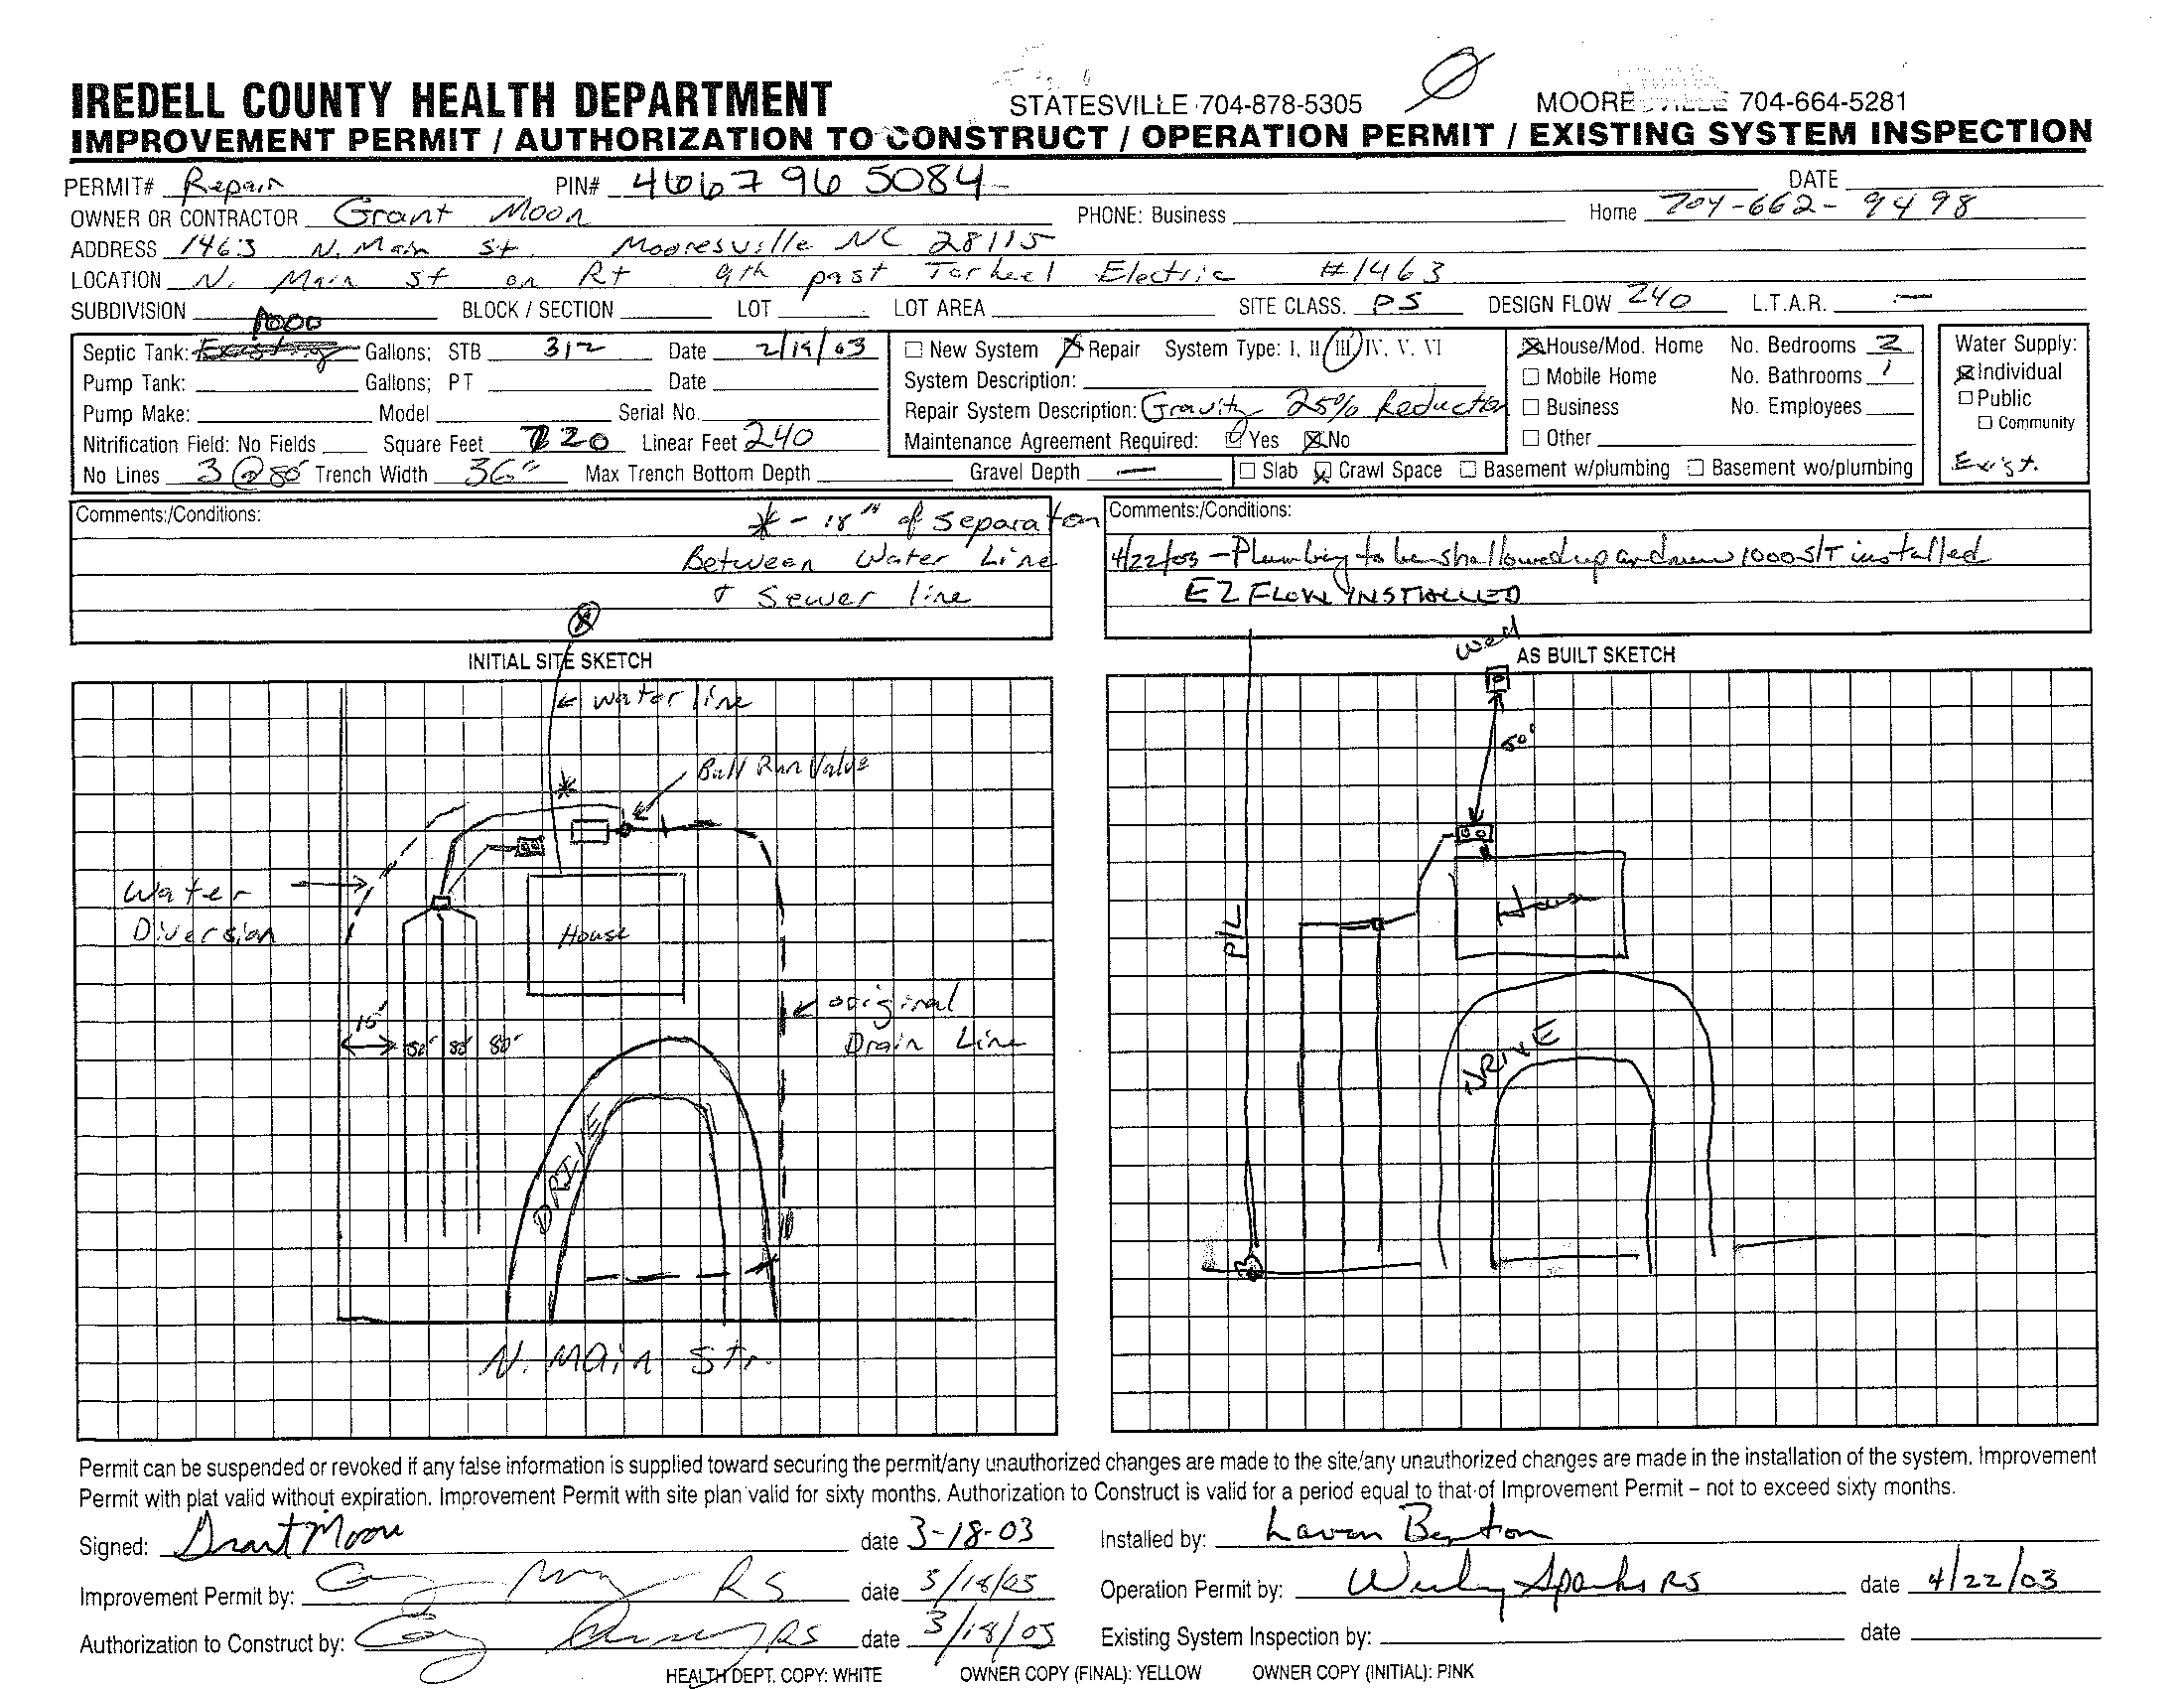 IREDELL COUNTY HEALTH DEPARTMENT STATESVILLE 704-878-5305 MOORESVILLE 704-664-5281
IMPROVEMENT PERMIT / AUTHORIZATION TO CONSTRUCT / OPERATION PERMIT / EXISTING SYSTEM INSPECTION
PERMIT# Repair PIN# 4667 96 5084 DATE
OWNER OR CONTRACTOR Grant Moon PHONE: Business Home 704-662-9498
ADDRESS 1463 N. Main St. Mooresville NC 28115
LOCATION N. Main St on Rt 9th past Tarheel Electric #1463
SUBDIVISION BLOCK / SECTION LOT LOT AREA SITE CLASS. PS DESIGN FLOW 240 L.T.A.R. —
1000
Septic Tank: Existing Gallons; STB 312 Date 2/19/03
Pump Tank: Gallons; PT Date
Pump Make: Model Serial No.
Nitrification Field: No Fields Square Feet 720 Linear Feet 240
No Lines 3 @ 80' Trench Width 36" Max Trench Bottom Depth Gravel Depth —
New System Repair System Type: I, II, III, IV, V, VI
System Description:
Repair System Description: Gravity 25% Reduction
Maintenance Agreement Required: Yes No
House/Mod. Home No. Bedrooms 2
Mobile Home No. Bathrooms 1
Business No. Employees
Other
Slab Crawl Space Basement w/plumbing Basement wo/plumbing
Water Supply:
Individual
Public
Community
Exist.
Comments:/Conditions:
* - 18" of Separaton
Between Water Line
+ Sewer line
Comments:/Conditions:
4/22/03 - Plumbing to be shallowed up and new 1000 S/T installed
EZ FLOW INSTALLED
INITIAL SITE SKETCH
water line
Bull Run Valve
*
Water
Diversion
House
15'
80' 80' 80'
original
Drain Line
DRIVE
N. Main Str.
AS BUILT SKETCH
Well
50'
House
P/L
DRIVE
Permit can be suspended or revoked if any false information is supplied toward securing the permit/any unauthorized changes are made to the site/any unauthorized changes are made in the installation of the system. Improvement
Permit with plat valid without expiration. Improvement Permit with site plan valid for sixty months. Authorization to Construct is valid for a period equal to that of Improvement Permit – not to exceed sixty months.
Signed: Grant Moon date 3-18-03
Improvement Permit by: RS date 3/18/03
Authorization to Construct by: RS date 3/18/03
Installed by: Lavon Benton
Operation Permit by: Wesley Sparks RS date 4/22/03
Existing System Inspection by: date
HEALTH DEPT. COPY: WHITE OWNER COPY (FINAL): YELLOW OWNER COPY (INITIAL): PINK